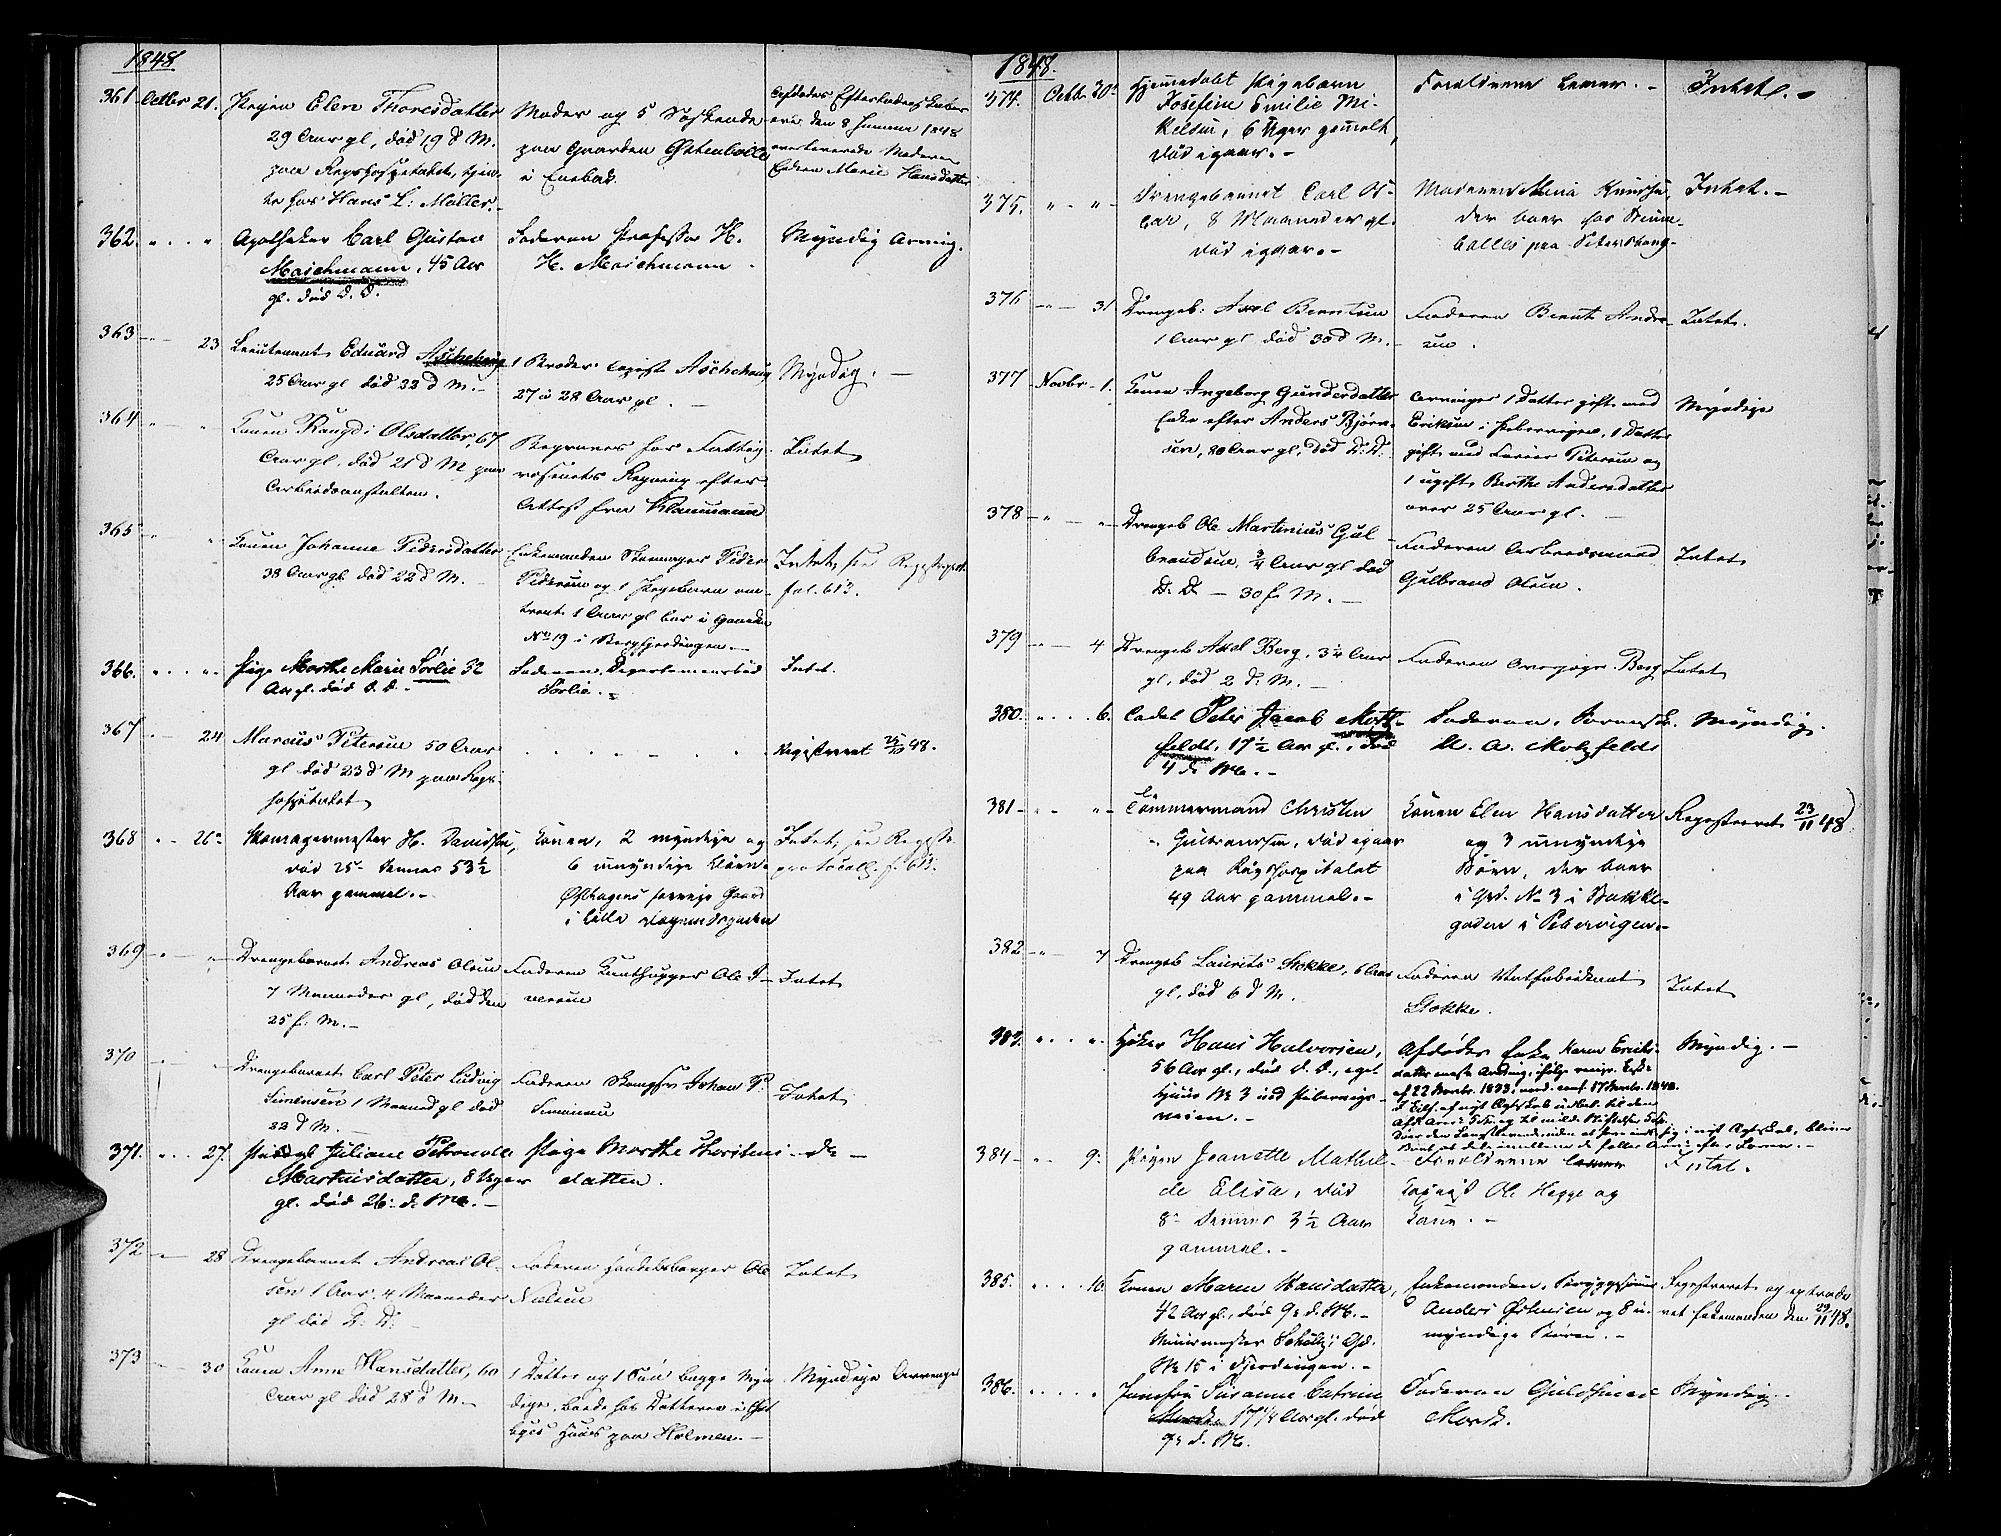 1848
361 Octbr 21. Pigen Elen Thoresdatter
29 Aar gl, død 19 d M.
paa Rigshospitalet, tjen-
te hos Hans L: Møller.-
Moder og 5 Søskende
paa Gaarden Østenbølle
i Enebak.
Afdødes Efterladenskaber
ere den 8 Januar 1848
overleverede Moderen
Marie Hansdatter
362. " " Apotheker Carl Gustav
Maschmann, 45 Aar
gl. død d. D.
Faderen Professor H.
H. Maschmann
Myndig Arving.
363 " 23 Lieutenant Eduard Aschehoug
25 Aar gl død 22 d M.-
1 Broder Aschehoug
27 à 28 Aar gl.
Myndig.
364 " " Konen Rangdi Olsdatter, 67
Aar gl, død 21 d M paa
Arbeidsanstalten.
Begraves for Fattig-
væsenets Regning efter
Attest fra Klaumann
Intet
365 " " Konen Johanne Pedersdatter
38 Aar gl død 22 d M.
Enkemanden Skomager Peder
Pedersen og 1 Pigebarn om-
trent 1 Aar gl bor i Gaarden
No 19 i Bergfjerdingen.
Intet, see
fol. 613.
366. " " Pige Marthe Marie Sørlie 32
Aar gl. død d. D.
Faderen, Departementsbud
Sørlie.
Intet.
367 " 24 Marcus Petersen 50 Aar
gl død 23 d M paa Rigs-
hospitalet
Registreret 48.
368 " 26 Skomagermester H. Davidsen,
død 25 dennes 53 1/2
Aar gammel.-
Konen, 2 myndige og
6 umyndige Børn
Gaard
i lille
Intet, see Registr.
protocoll. f. 613.
369 " " Drengebarnet Andreas Olsen
7 Maaneder gl, død den
25 f. M.-
Faderen Ole I-
versen
Intet
370 Drengebarnet Carl Peter Ludvig
Simensen 1 Maaned gl død
22 d M.
Faderen Johan P.
Simensen
Intet
371. " 27. Pigeb Juliane Petronelle
Martinsdatter, 8 Uger
gl. død 26 d. M.-
Pige Marthe Thorstens
datter.
do
372 " 28 Drengebarnet Andreas Ol-
sen 1 Aar 4 Maaneder
gl død D. D.
Faderen Handelsborger Ole
Nielsen
Intet
373 " 30 Konen Anne Hansdatter, 60
Aar gl død 28 d M.
1 Datter og 1 Søn begge Myn
dige, boede hos Datteren i
Huus paa Holmen.
Myndige Arvinge
1848.
374. Octb. 30 Hjemmedøbt Pigebarn
Josefine Emilie Mi-
kelsen, 6 Uger gammelt,
død igaar.-
Forældrene Lever.-
Intet.-
375. " " Drengebarnet Carl Os-
car, 8 Maaneder gl.
død igaar.-
Moderen Mina Knudsen,
der boer hos
paa Peterstang-
Intet.-
376 " 31 Drengeb: Axel Berntsen
1 Aar gl død 30 d M.-
Faderen Bernt Andr-
sen.
Intet.
377 Novbr 1. Konen Ingeborg Gundersdatter
Enke efter Anders Bjørn-
sen, 80 Aar gl, død D: D:
Arvinger 1 Datter gift med
Eriksen i Pebervigen, 1 Datter
gift med Petersen og
1 ugift Berthe Andersdatter
over 25 Aar gl.
Myndige
378 " " Drengeb Ole Martinius Gul
brandsen, 3/4 Aar gl død
D. D - 30 f M.-
Faderen Arbeidsmand
Gulbrand Olsen.
Intet
379 " 4 Drengeb Axel Berg, 3 1/4 Aar
gl, død 2 d: M.-
Faderen Berg
Intet
380. " 6. Cadet Peter Jacob Motz-
feldt, 17 1/2 Aar gl., død
4 d. M.-
Faderen,
U. A. Motzfeldt
Myndig.
381 " " Tømmermand Christen
Gulbrandsen, død igaar
paa Rigshospitalet
49 Aar gammel.-
Konen Elen Hansdatter
og 3 umyndige
Børn, der boer
i Grd. No 3 i Bakke-
gaden i Pebervigen.-
Registreret 23/11 48
382 " 7 Drengeb Laurits Stokke, 6 Aar
gl, død 6 d M.
Faderen Vatfabrikant
Stokke.
Intet
383. " " Høker Hans Halvorsen,
56 Aar gl., død d. D., eget
Huus No 3 ved Pebervigs-
veien.-
Afdødes Enke Karen Eriks-
datter
af 22 Novbr. 1833,
Myndig.-
384 " 9 Pigen Jeanette Mathil-
de Elisa, død
8 dennes 3 1/2 Aar
gammel.-
Forældrene
Copist Ole Hegge og
Kone.-
Intet.
385. " 10. Konen Maren Hansdatter,
42 Aar gl., død 9 d. M.-
Muurmester Schultz' Gd.
No 15 i Fjerdingen.-
Enkemanden, Bryggesjouer
Anders Østensen og 8 u-
myndige Børn.-
Registreret og extrade-
ret Enkemanden den 29/11 48.
386. " " Jomfru Susanne Catrine
17 1/4 Aar gl. død
9 d. M.
Faderen Guldsmed
Mork.
Myndig.